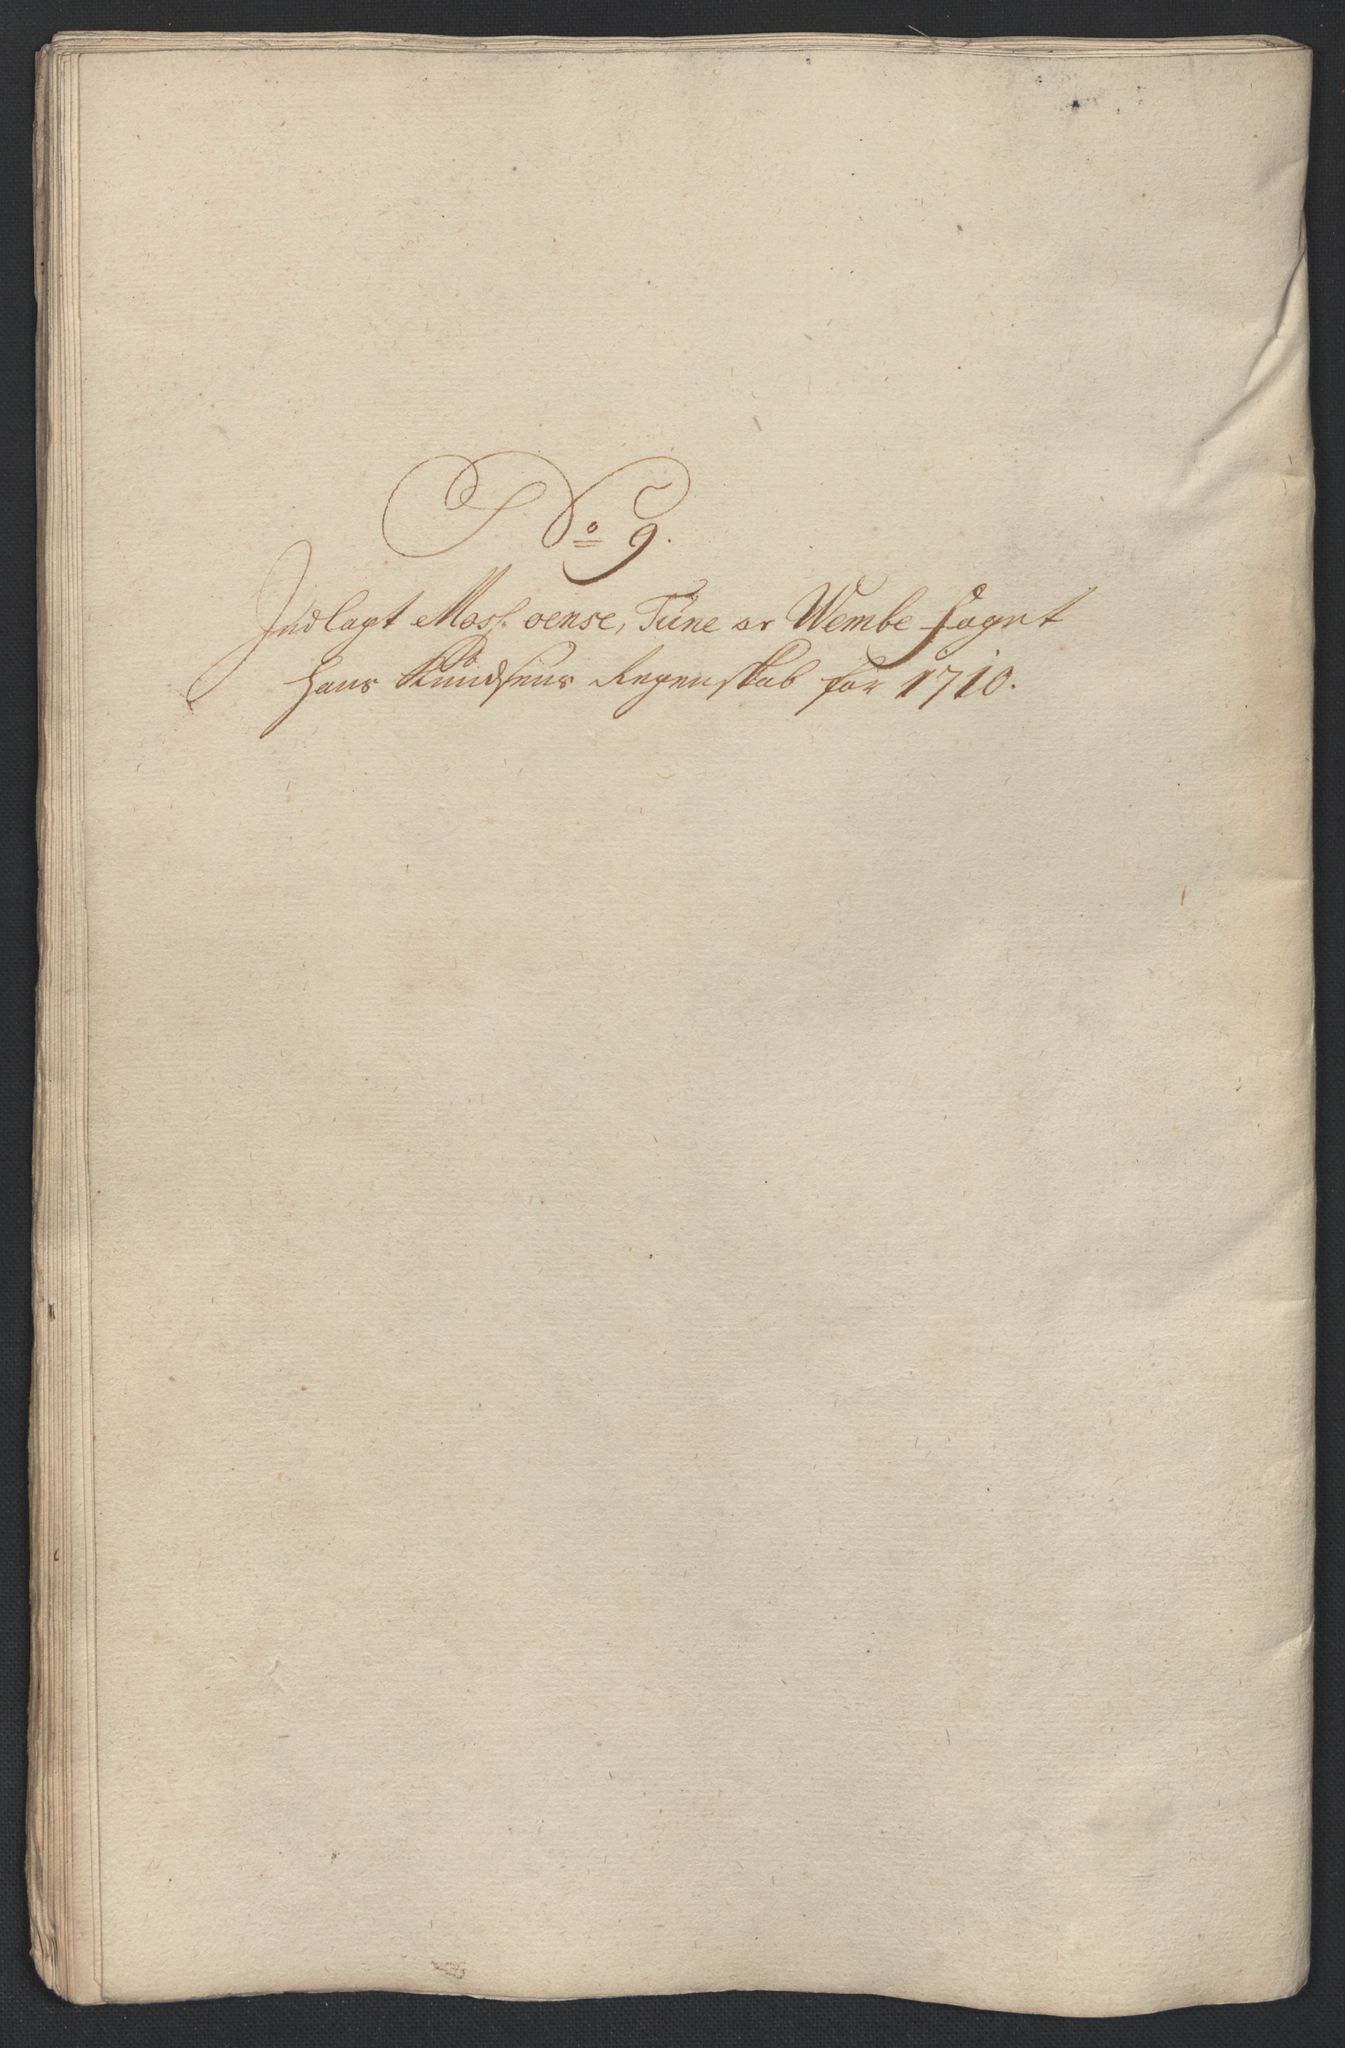 No 9.
Indlagt Moss. oense, Tüne oc Wembe fogut
Hans Knüdsens Regenskab for 1710.